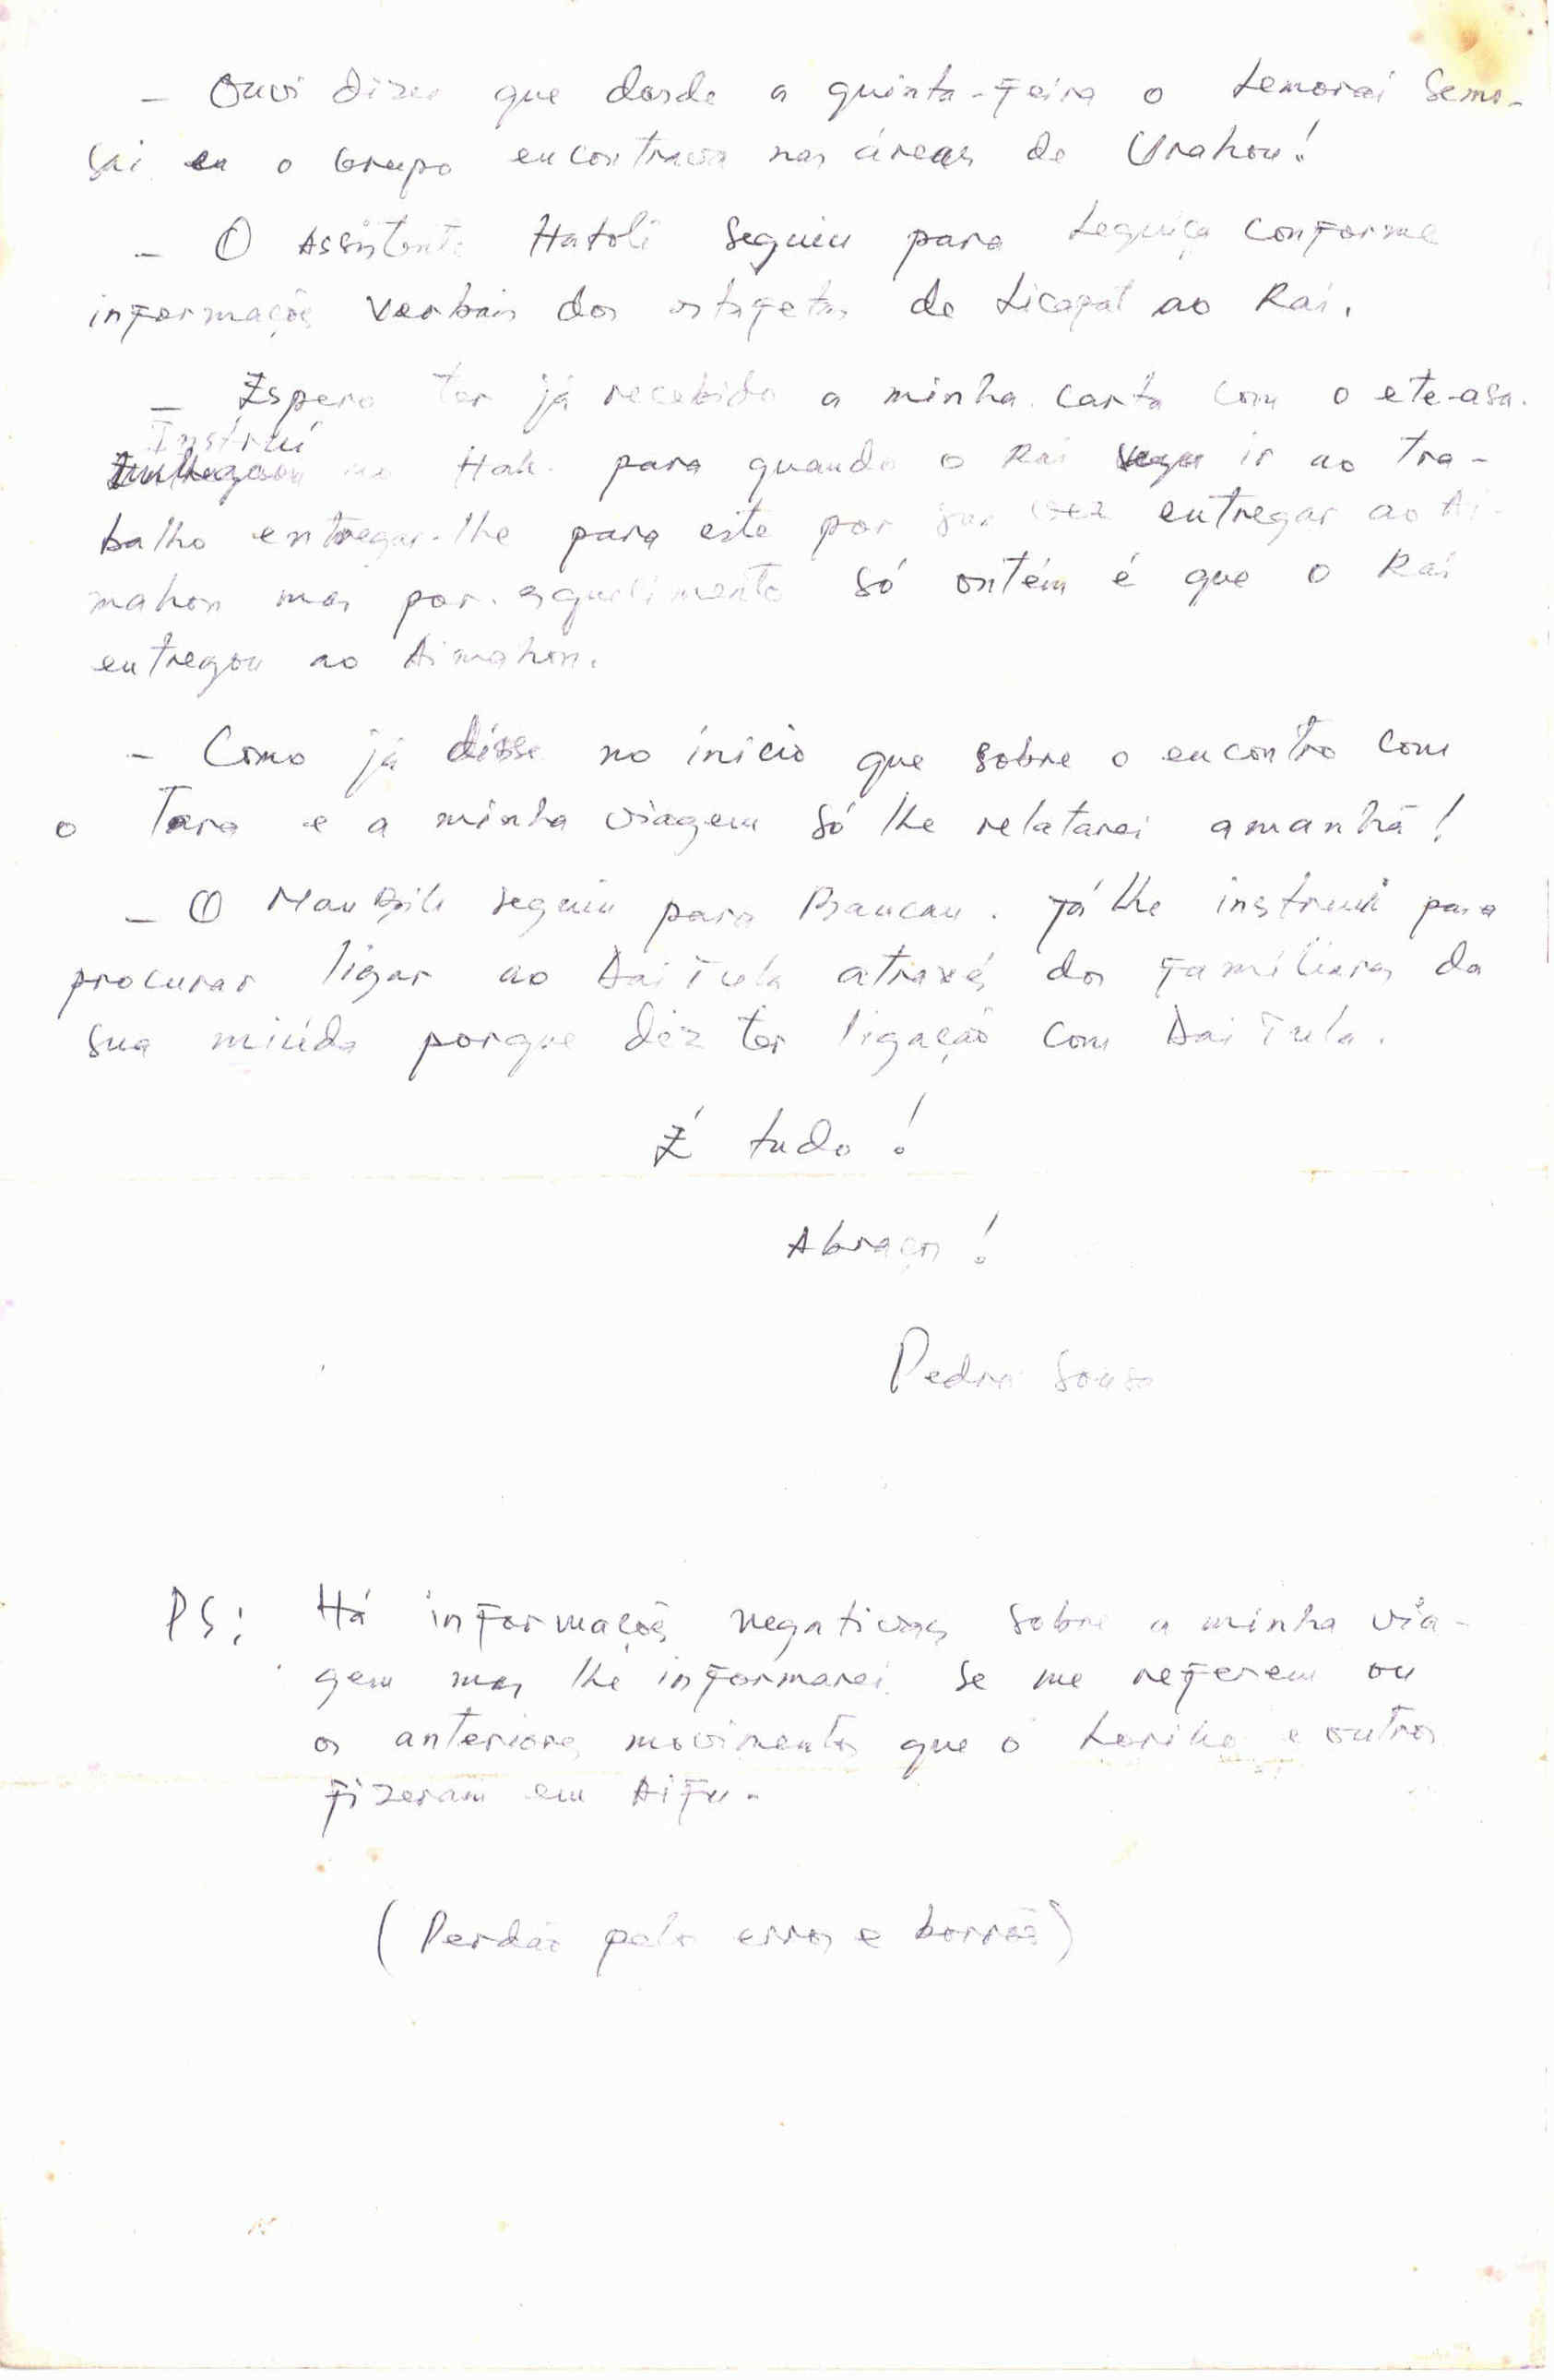 - Ouvi dizer que desde a quinta-feira o Lemorai Semo-
sai eu o Grupo encontrava nas áreas de Urahou!
- O Assistente Hatoli seguiu para Leguiça conforme
informações verbais dos estafetas de Licapat ao Rai.
- Espero ter já recebido a minha carta com o ete-asa.
Instruí
no Hak. para quando o Rai ir ao tra-
balho entregar-lhe para este por sua vez entregar ao Ai-
mahon mas por esquecimento só ontém é que o Rai
entregou ao Aimahon.
- Como já disse no início que sobre o encontro com
o Tara e a minha viagem só lhe relatarei amanhã!
- O MauBili seguiu para Baucau. Já lhe instruí para
procurar ligar ao DaiTula através dos familiares da
sua miúda porque diz ter ligação com DaiTula.
É tudo!
Abraços!
Pedro Sousa
PS: Há informações negativas sobre a minha via-
gem mas lhe informarei se me referem ou
os anteriores movimentos que o Leriho e outros
fizeram em Aifu.
(Perdão pelos erros e borrões)